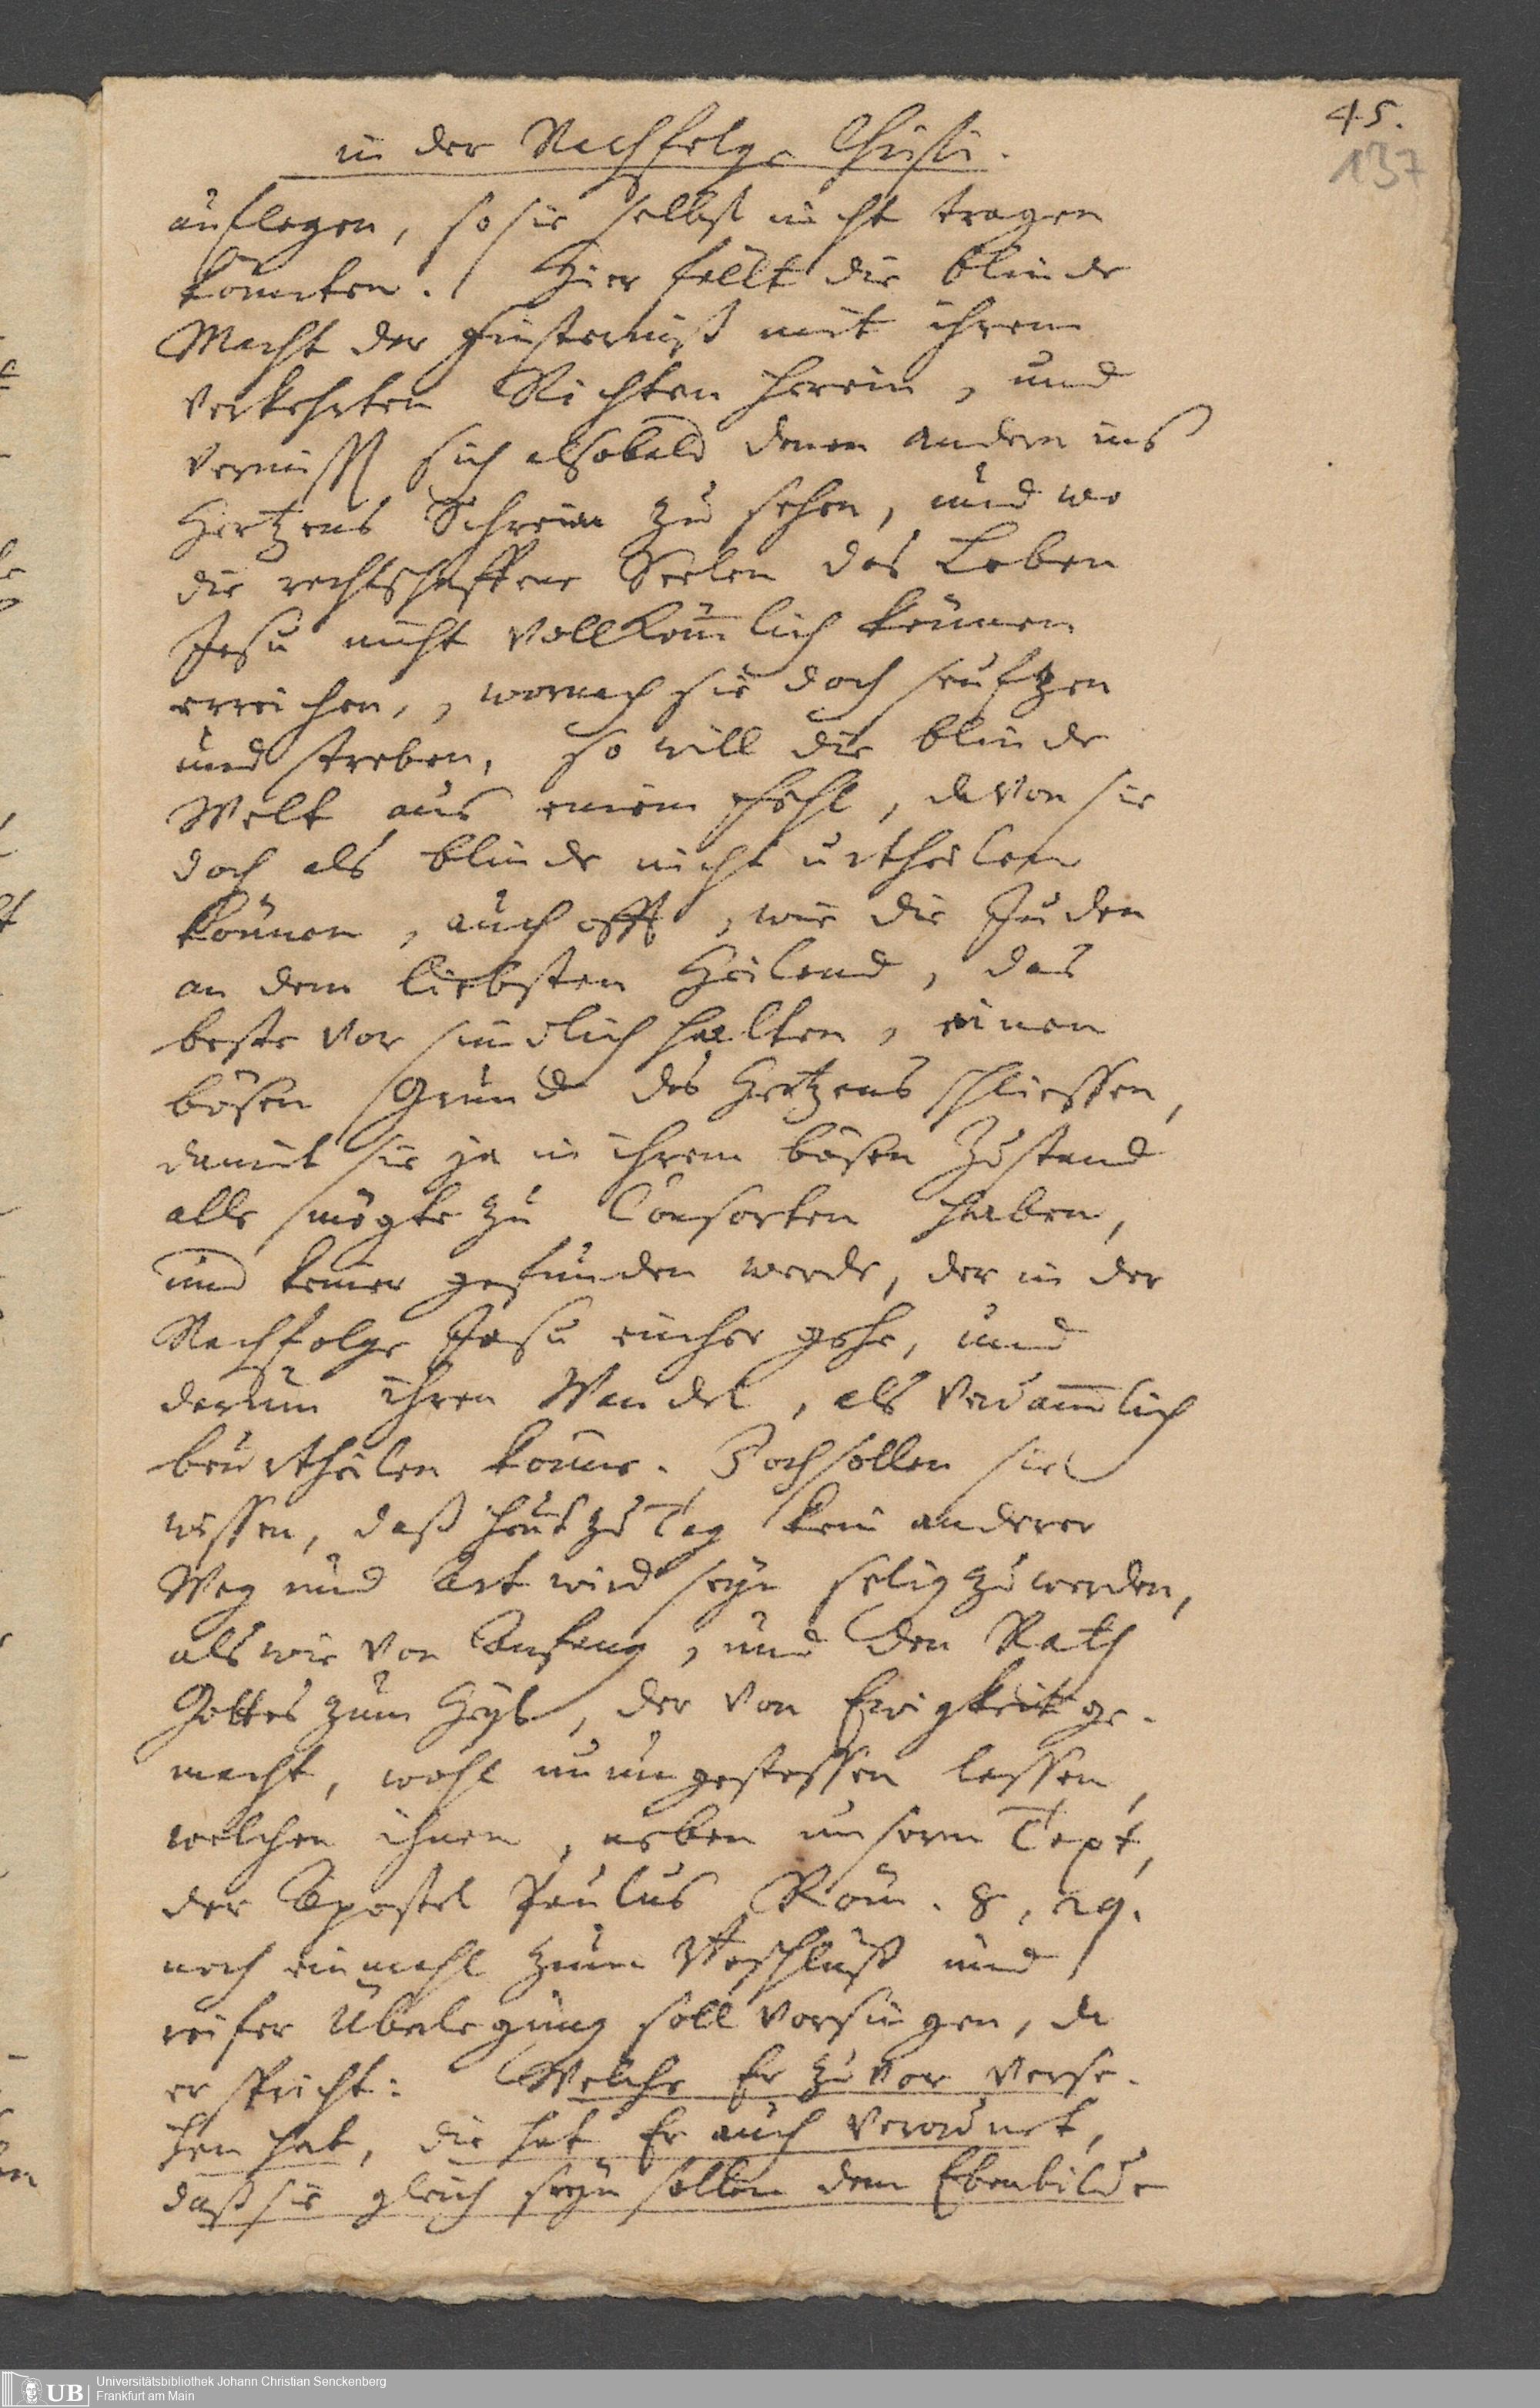 45.
137
in der Nachfolge Christi.
auflegen, so sie selbst nicht tragen
könnten. Hier fällt die blinde
Macht der Finsterniß mit ihrem
verkehrten Richten herein, und
vermisst sich alsobald denen andern ins
Hertzens Schrein zu sehen, und wo
die rechtschaffene Seelen das Leben
Jesu nicht vollkom̄lich können
erreichen, wornach sie doch seuftzen
und streben, so will die blinde
Welt aus einem Fehl, davon sie
doch als blinde nicht urtheilen
können, auch offt, wie die Juden
an dem liebsten Heiland, das
beste vor sündlich halten, einen
bösen Grund des Hertzens schliessen,
damit sie ja in ihrem bösen Zustand
alle mögte zu Consorten haben,
und keiner gefunden werde, der in der
Nachfolge Jesu einher gehe, und
darum ihren Wandel, als verdam̄lich
beurtheilen könne. Doch sollen sie
wissen, daß heut zu Tag kein anderer
Weg und Art wird seyn selig zu werden,
als wie von Anfang, und den Rath
Gottes zum Heyl, der von Ewigkeit ge-
macht, wohl unumgestossen lassen,
welchen ihnen, neben unserm Text,
der Apostel Paulus Röm. 8, 29.
noch einmahl zum Beschluß und
reifer Überlegung soll vorsingen, da
er spricht: Welche Er zuvor verse-
hen hat, die hat Er auch verordnet,
daß sie gleich seyn sollen dem Ebenbilde
UB
Universitätsbibliothek Johann Christian Senckenberg
Frankfurt am Main